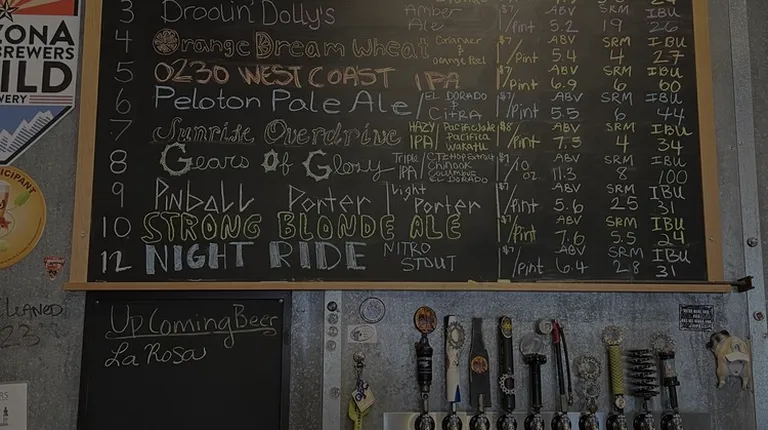 ZONA
BREWERS
ILD
WERY
ICIPANT
3 Droolin' Dolly's Amber Ale /pint 5.2 19 26
4 Orange Dream Wheat Coriander & Orange Peel $7/Pint ABV 5.4 SRM 4 IBU 27
5 0230 WEST COAST IPA $7/Pint ABV 6.9 SRM 6 IBU 60
6 Peloton Pale Ale / EL DORADO & CITRA $7/Pint ABV 5.5 SRM 6 IBU 44
7 Sunrise Overdrive HAZY IPA / Pacific Jade Pacifica WAKATU $8/Pint ABV 7.5 SRM 4 IBU 34
8 Gears Of Glory Triple IPA / CTZ HOP Extract Chinook COLUMBUS EL DORADO /10 oz ABV 11.3 SRM 8 IBU 100
9 PINBALL PORTER Light Porter $7/Pint ABV 5.6 SRM 25 IBU 31
10 STRONG BLONDE ALE $7/Pint ABV 7.6 SRM 5.5 IBU 24
12 NIGHT RIDE NITRO STOUT $7/Pint ABV 6.4 SRM 28 IBU 31
CLEANED
23
Up Coming Beer
La Rosa